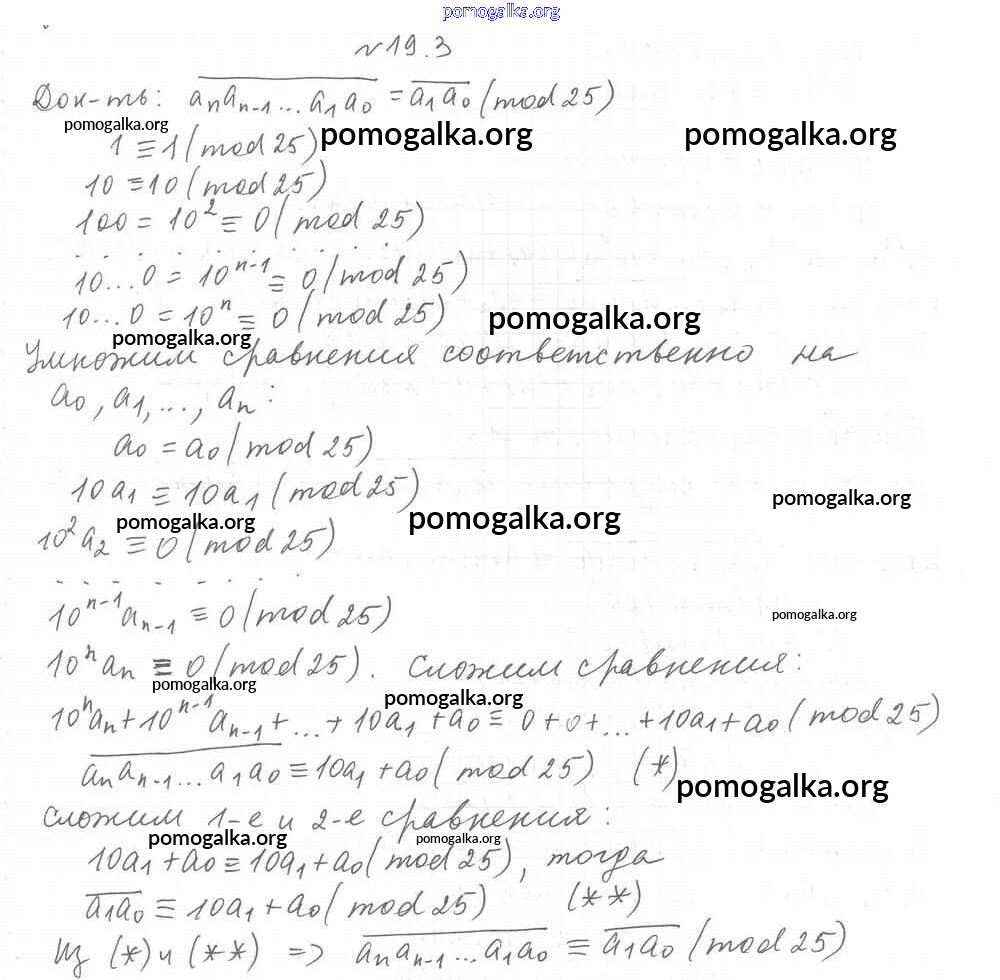 pomogalka.org
№19.3
Док-ть: a̅ₙa̅ₙ₋₁...a̅₁a̅₀ = a̅₁a̅₀ (mod 25)
pomogalka.org
1 ≡ 1 (mod 25) pomogalka.org pomogalka.org
10 ≡ 10 (mod 25)
100 = 10² ≡ 0 (mod 25)
. . . . . . . . . .
10...0 = 10ⁿ⁻¹ ≡ 0 (mod 25)
10...0 = 10ⁿ ≡ 0 (mod 25) pomogalka.org
pomogalka.org
Умножим сравнения соответственно на
a₀, a₁, ..., aₙ:
a₀ = a₀ (mod 25)
10a₁ ≡ 10a₁ (mod 25) pomogalka.org
pomogalka.org pomogalka.org
10²a₂ ≡ 0 (mod 25)
. . . . . . . .
10ⁿ⁻¹aₙ₋₁ ≡ 0 (mod 25) pomogalka.org
10ⁿaₙ ≡ 0 (mod 25). Сложим сравнения:
pomogalka.org pomogalka.org
10ⁿaₙ + 10ⁿ⁻¹aₙ₋₁ + ... + 10a₁ + a₀ ≡ 0 + 0 + ... + 10a₁ + a₀ (mod 25)
a̅ₙa̅ₙ₋₁...a̅₁a̅₀ ≡ 10a₁ + a₀ (mod 25) (*)
pomogalka.org
Сложим 1-е и 2-е сравнения:
pomogalka.org pomogalka.org
10a₁ + a₀ ≡ 10a₁ + a₀ (mod 25), тогда
a̅₁a̅₀ ≡ 10a₁ + a₀ (mod 25) (**)
Из (*) и (**) => a̅ₙa̅ₙ₋₁...a̅₁a̅₀ ≡ a̅₁a̅₀ (mod 25)